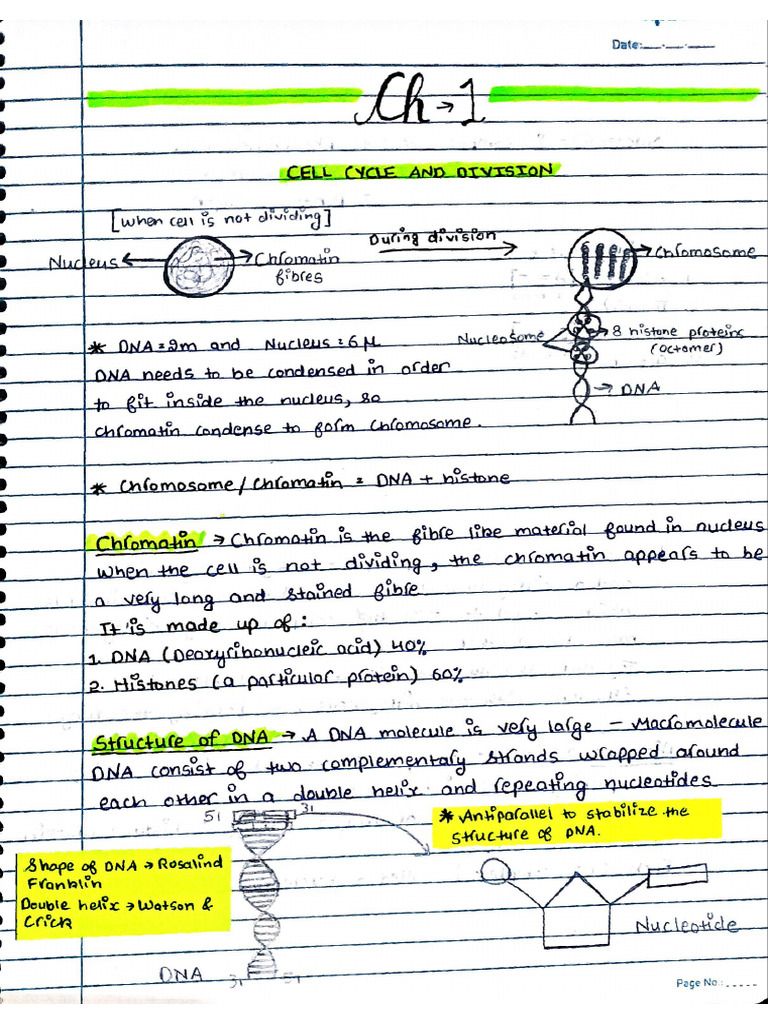 Date:__.__.__
Ch → 1
CELL CYCLE AND DIVISION
[When cell is not dividing]
During division
Nucleus
Chromatin
fibres
Chromosome
Nucleosome
8 histone proteins
(octamer)
DNA
* DNA = 2m and Nucleus = 6 µ
DNA needs to be condensed in order
to fit inside the nucleus, so
chromatin condense to form chromosome.
* Chromosome / Chromatin = DNA + histone
Chromatin → Chromatin is the fibre like material found in nucleus
when the cell is not dividing, the chromatin appears to be
a very long and stained fibre
It is made up of:
1. DNA (Deoxyribonucleic acid) 40%
2. Histones (a particular protein) 60%
Structure of DNA → A DNA molecule is very large – Macromolecule
DNA consist of two complementary strands wrapped around
each other in a double helix and repeating nucleotides
5' 3'
* Antiparallel to stabilize the
structure of DNA.
Shape of DNA → Rosalind
Franklin
Double helix → Watson &
Crick
Nucleotide
DNA 3' 5'
Page No.: .....